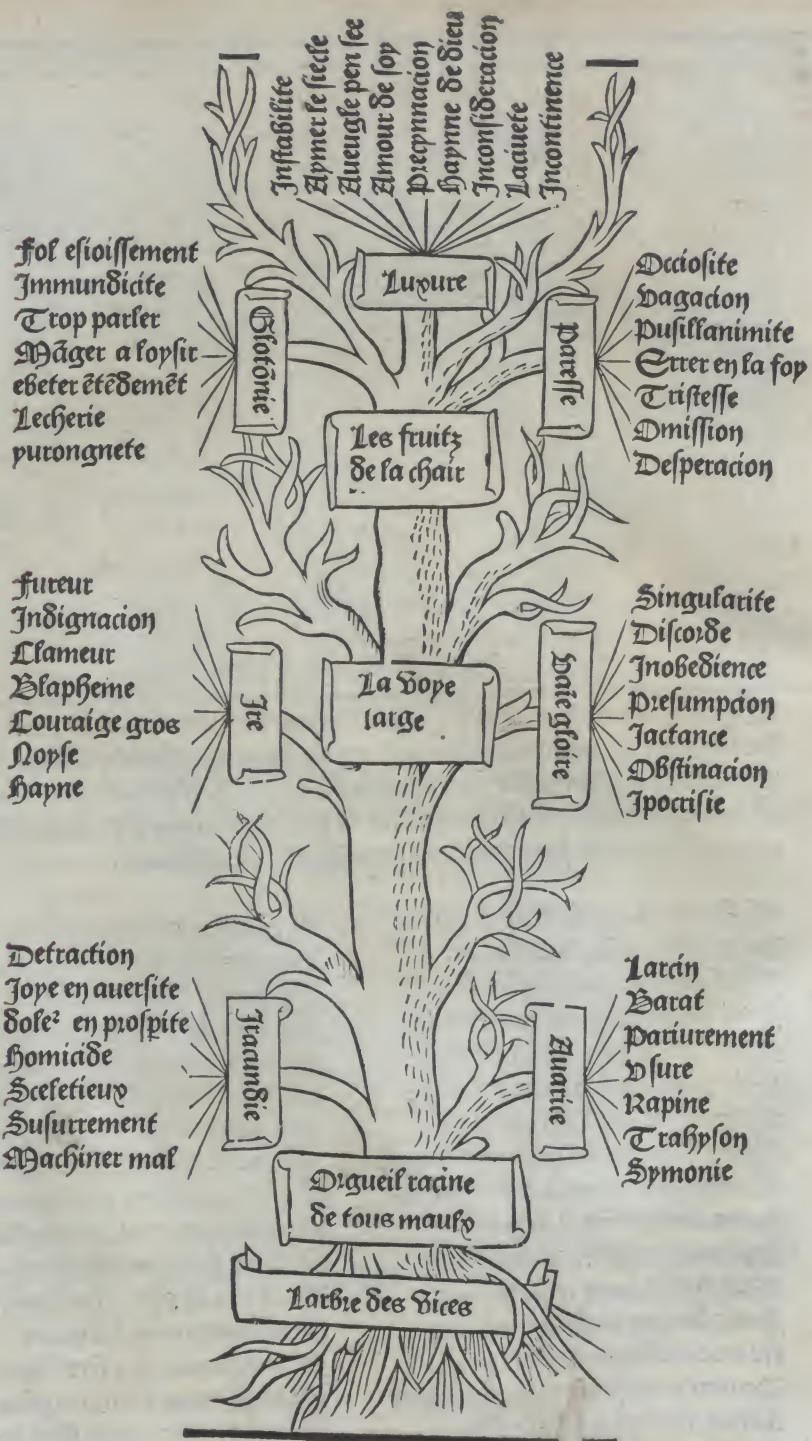 Instabilite
Aymer le siecle
Aueugle pen see
Amour de soy
Precynnacion
Haynne de dieu
Inconsideracion
Laciuete
Incontinence
Luxure
Fol esioissement
Immundicite
Trop parler
Mãger a loysir
ebeter ẽtẽdemẽt
Lecherie
yurongnete
Glotõnie
Paresse
Occiosite
Vagacion
Pusillanimite
Errer en la foy
Tristesse
Omission
Desperacion
Les fruitz
de la chair
Fureur
Indignacion
Clameur
Blapheme
Couraige gros
Noyse
Hayne
Ire
La voye
large
Vaie gloire
Singularite
Discorde
Inobedience
Presumpcion
Jactance
Obstinacion
Ipocrisie
Detraction
Joye en auersite
dole² en prosp̱ite
Homicide
Sceletieux
Susurrement
Machiner mal
Iracundie
Auarice
Larcin
Barat
Pariurement
Vsure
Rapine
Trahyson
Symonie
Orgueil racine
de tous maulx
Larbre des vices